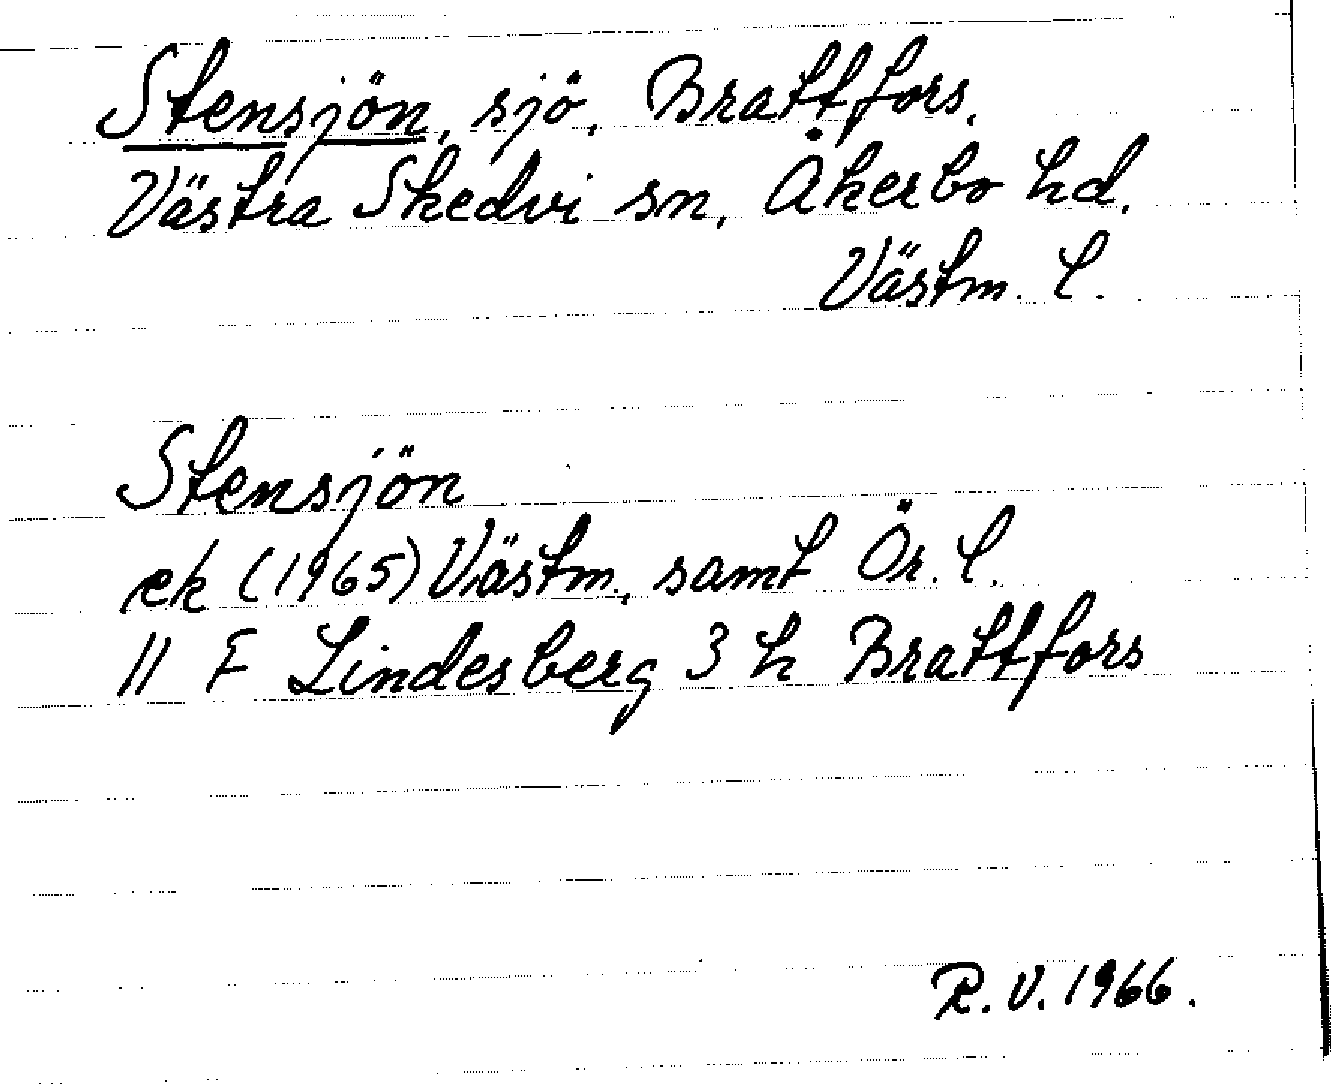 Stensjön, sjö, Brattfors,
Västra Skedvi sn, Åkerbo hd,
Västm. l.
Stensjön
ek (1965) Västm., samt Ör. l.
11 F Lindesberg 3 h Brattfors
R. V. 1966.